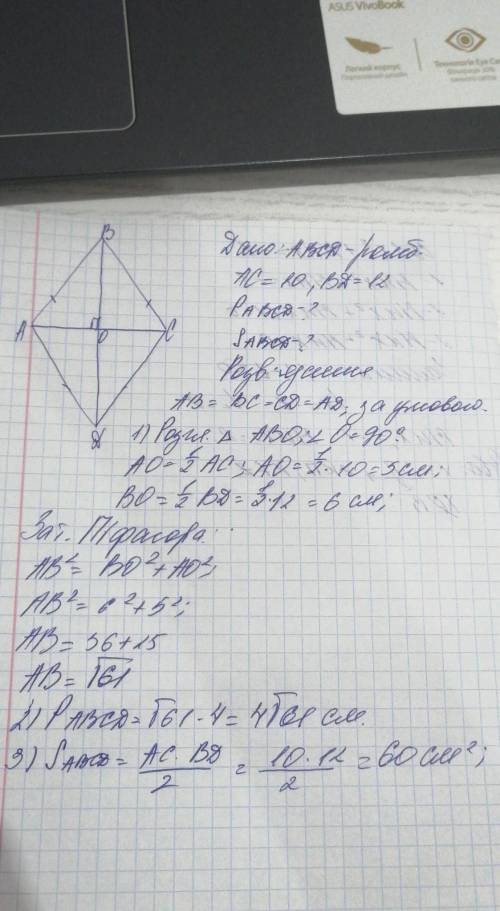 ASUS VivoBook
Легкий корпус
B
A
O
C
Дано: ABCD - ромб.
AC = 10, BD = 12
P ABCD - ?
S ABCD - ?
Розв'язання
AB = BC = CD = AD, за умовою.
1) Розгл. Δ ABO, ∠ O = 90°.
AO = 1/2 AC; AO = 1/2 · 10 = 5 см;
BO = 1/2 BD = 1/2 · 12 = 6 см;
За т. Піфагора:
AB² = BO² + AO²;
AB² = 6² + 5²;
AB = 36 + 25
AB = √61
2) P ABCD = √61 · 4 = 4√61 см.
3) S ABCD = AC · BD / 2 = 10 · 12 / 2 = 60 см²;